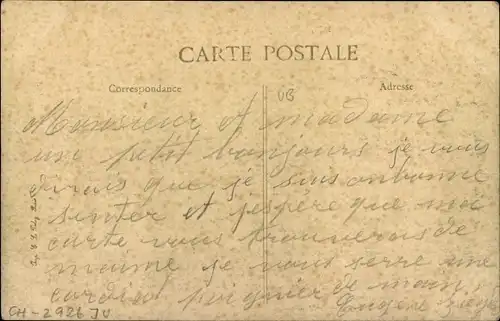 CARTE POSTALE
Correspondance
Adresse
UB
Monsieur et madame
un petit bonjours je vous
dirais que je suis en bonne
senter et j'espère que ma
carte vous trouverais de
maime je vous serre une
cordial poignier de main
Eugène
CH-2926 JU